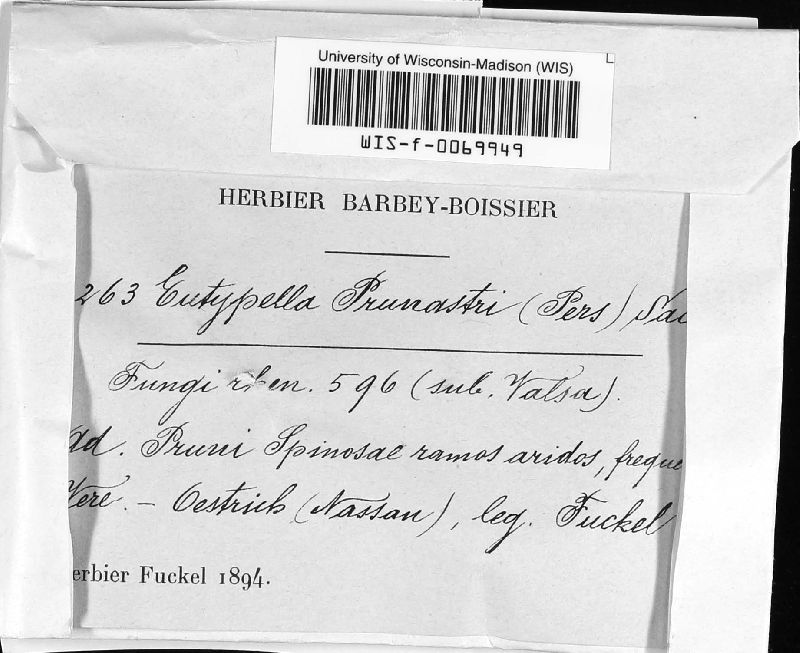 University of Wisconsin-Madison (WIS)
WIS-f-0069949
HERBIER BARBEY-BOISSIER
263 Eutypella Prunastri (Pers) Sac
Fungi rhen. 596 (sub. Valsa).
ad. Pruni Spinosae ramos aridos, freque
Vere. - Oestrich (Nassau), leg. Fuckel
erbier Fuckel 1894.